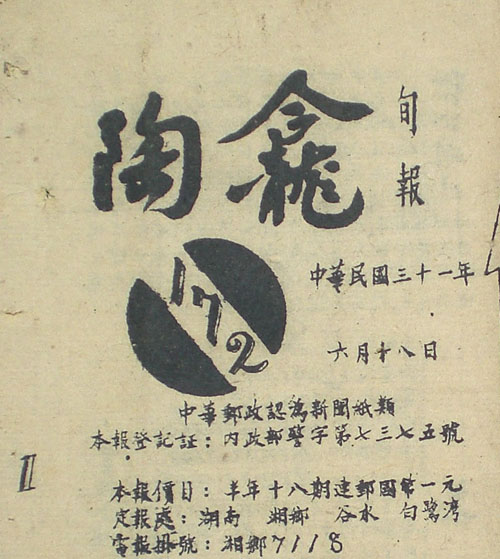 陶龕
旬報
172
中華民國三十一年
六月十八日
中華郵政認為新聞紙類
本報登記証：內政部警字第七三七五號
II
本報價目：半年十八期連郵國幣一元
定報處：湖南 湘鄉 谷水 白鷺湾
電報掛號：湘鄉7118